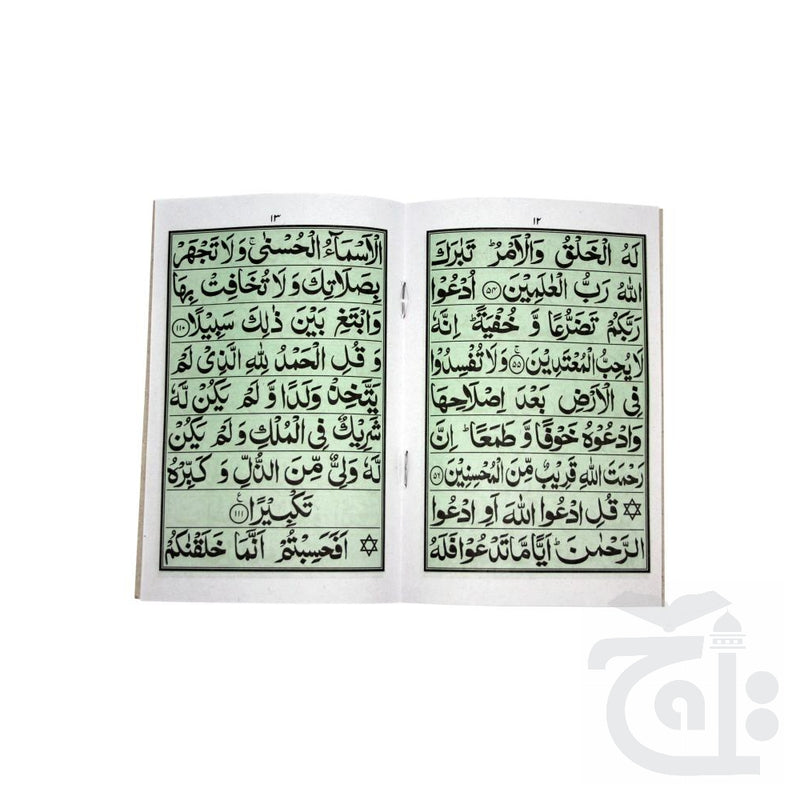 ١٢
لَهُ الْخَلْقُ وَالْاَمْرُ ؕ تَبٰرَكَ
اللهُ رَبُّ الْعٰلَمِيْنَ ﴿٥٤﴾ اُدْعُوْا
رَبَّكُمْ تَضَرُّعًا وَّ خُفْيَةً ؕ اِنَّهٗ
لَا يُحِبُّ الْمُعْتَدِيْنَ ۚ ﴿٥٥﴾ وَلَا تُفْسِدُوْا
فِي الْاَرْضِ بَعْدَ اِصْلَاحِهَا
وَادْعُوْهُ خَوْفًا وَّ طَمَعًا ؕ اِنَّ
رَحْمَتَ اللهِ قَرِيْبٌ مِّنَ الْمُحْسِنِيْنَ ﴿٥٦﴾
✡ قُلِ ادْعُوا اللهَ اَوِ ادْعُوا
الرَّحْمٰنَ ؕ اَيًّا مَّا تَدْعُوْا فَلَهُ
١٣
الْاَسْمَآءُ الْحُسْنٰى ۚ وَلَا تَجْهَرْ
بِصَلَاتِكَ وَلَا تُخَافِتْ بِهَا
وَابْتَغِ بَيْنَ ذٰلِكَ سَبِيْلًا ﴿١١٠﴾
وَ قُلِ الْحَمْدُ لِلهِ الَّذِيْ لَمْ
يَتَّخِذْ وَلَدًا وَّ لَمْ يَكُنْ لَّهٗ
شَرِيْكٌ فِي الْمُلْكِ وَ لَمْ يَكُنْ
لَّهٗ وَلِيٌّ مِّنَ الذُّلِّ وَ كَبِّرْهُ
تَكْبِيْرًا ﴿١١١﴾
✡ اَفَحَسِبْتُمْ اَنَّمَا خَلَقْنٰكُمْ